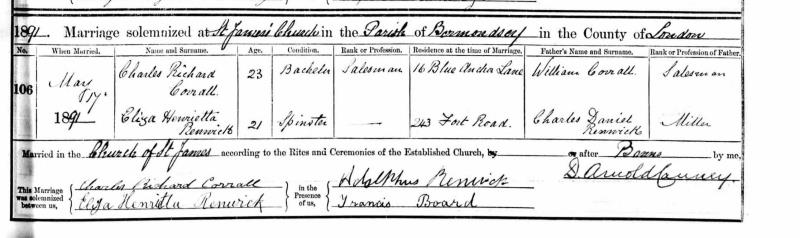 1891. Marriage solemnized at St James' Church in the Parish of Bermondsey in the County of London
No. When Married. Name and Surname. Age. Condition. Rank or Profession. Residence at the time of Marriage. Father's Name and Surname. Rank or Profession of Father.
106 May 17 1891 Charles Richard Corrall 23 Bachelor Salesman 16 Blue Anchor Lane William Corrall Salesman
Eliza Henrietta Renwick 21 Spinster — 243 Fort Road. Charles Daniel Renwick Miller
Married in the Church of St James according to the Rites and Ceremonies of the Established Church, by or after Banns by me,
This Marriage was solemnized between us, Charles Richard Corrall in the Presence of us, Adolphus Renwick D. Arnold
Eliza Henrietta Renwick Francis Board